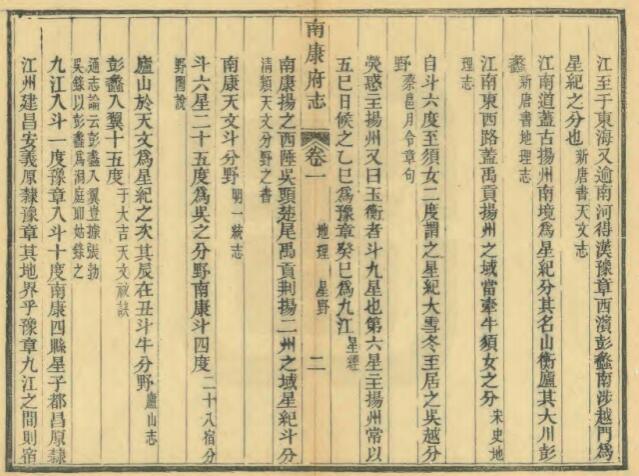 江至于東海又逾南河得漢豫章西濱彭蠡南涉越門爲
星紀之分也新唐書天文志
江南道蓋古揚州南境爲星紀分其名山衡廬其大川彭
蠡新唐書地理志
江南東西路蓋禹貢揚州之域當牽牛須女之分宋史地
理志
自斗六度至須女二度謂之星紀大雪冬至居之吳越分
野蔡邕月令章句
熒惑主揚州又曰玉衡者斗九星也第六星主揚州常以
五巳日候之乙巳爲豫章癸巳爲九江星經
南康府志
卷一
地理 星野
二
南康揚之西陲吳頭楚尾禹貢荆揚二州之域星紀斗分
清類天文分野之書
南康天文斗分野明一統志
斗六星二十五度爲吳之分野南康斗四度二十八宿分
野圖說
廬山於天文爲星紀之次其辰在丑斗牛分野廬山志
彭蠡入翼十五度于大吉天文祕訣
通志論云彭蠡入翼豈據張勃
吳錄以彭蠡爲洞庭耶姑錄之
九江入斗一度豫章入斗十度南康四縣星子都昌原隸
江州建昌安義原隸豫章其地界乎豫章九江之間則宿